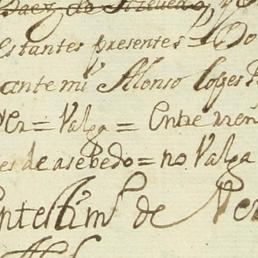 Baez de Azevedo, y
estantes presentes = Do
ante mi Alonso lopes
ver = Valga = Entre ren
es de asebedo = no Valga
entestim° de Ver